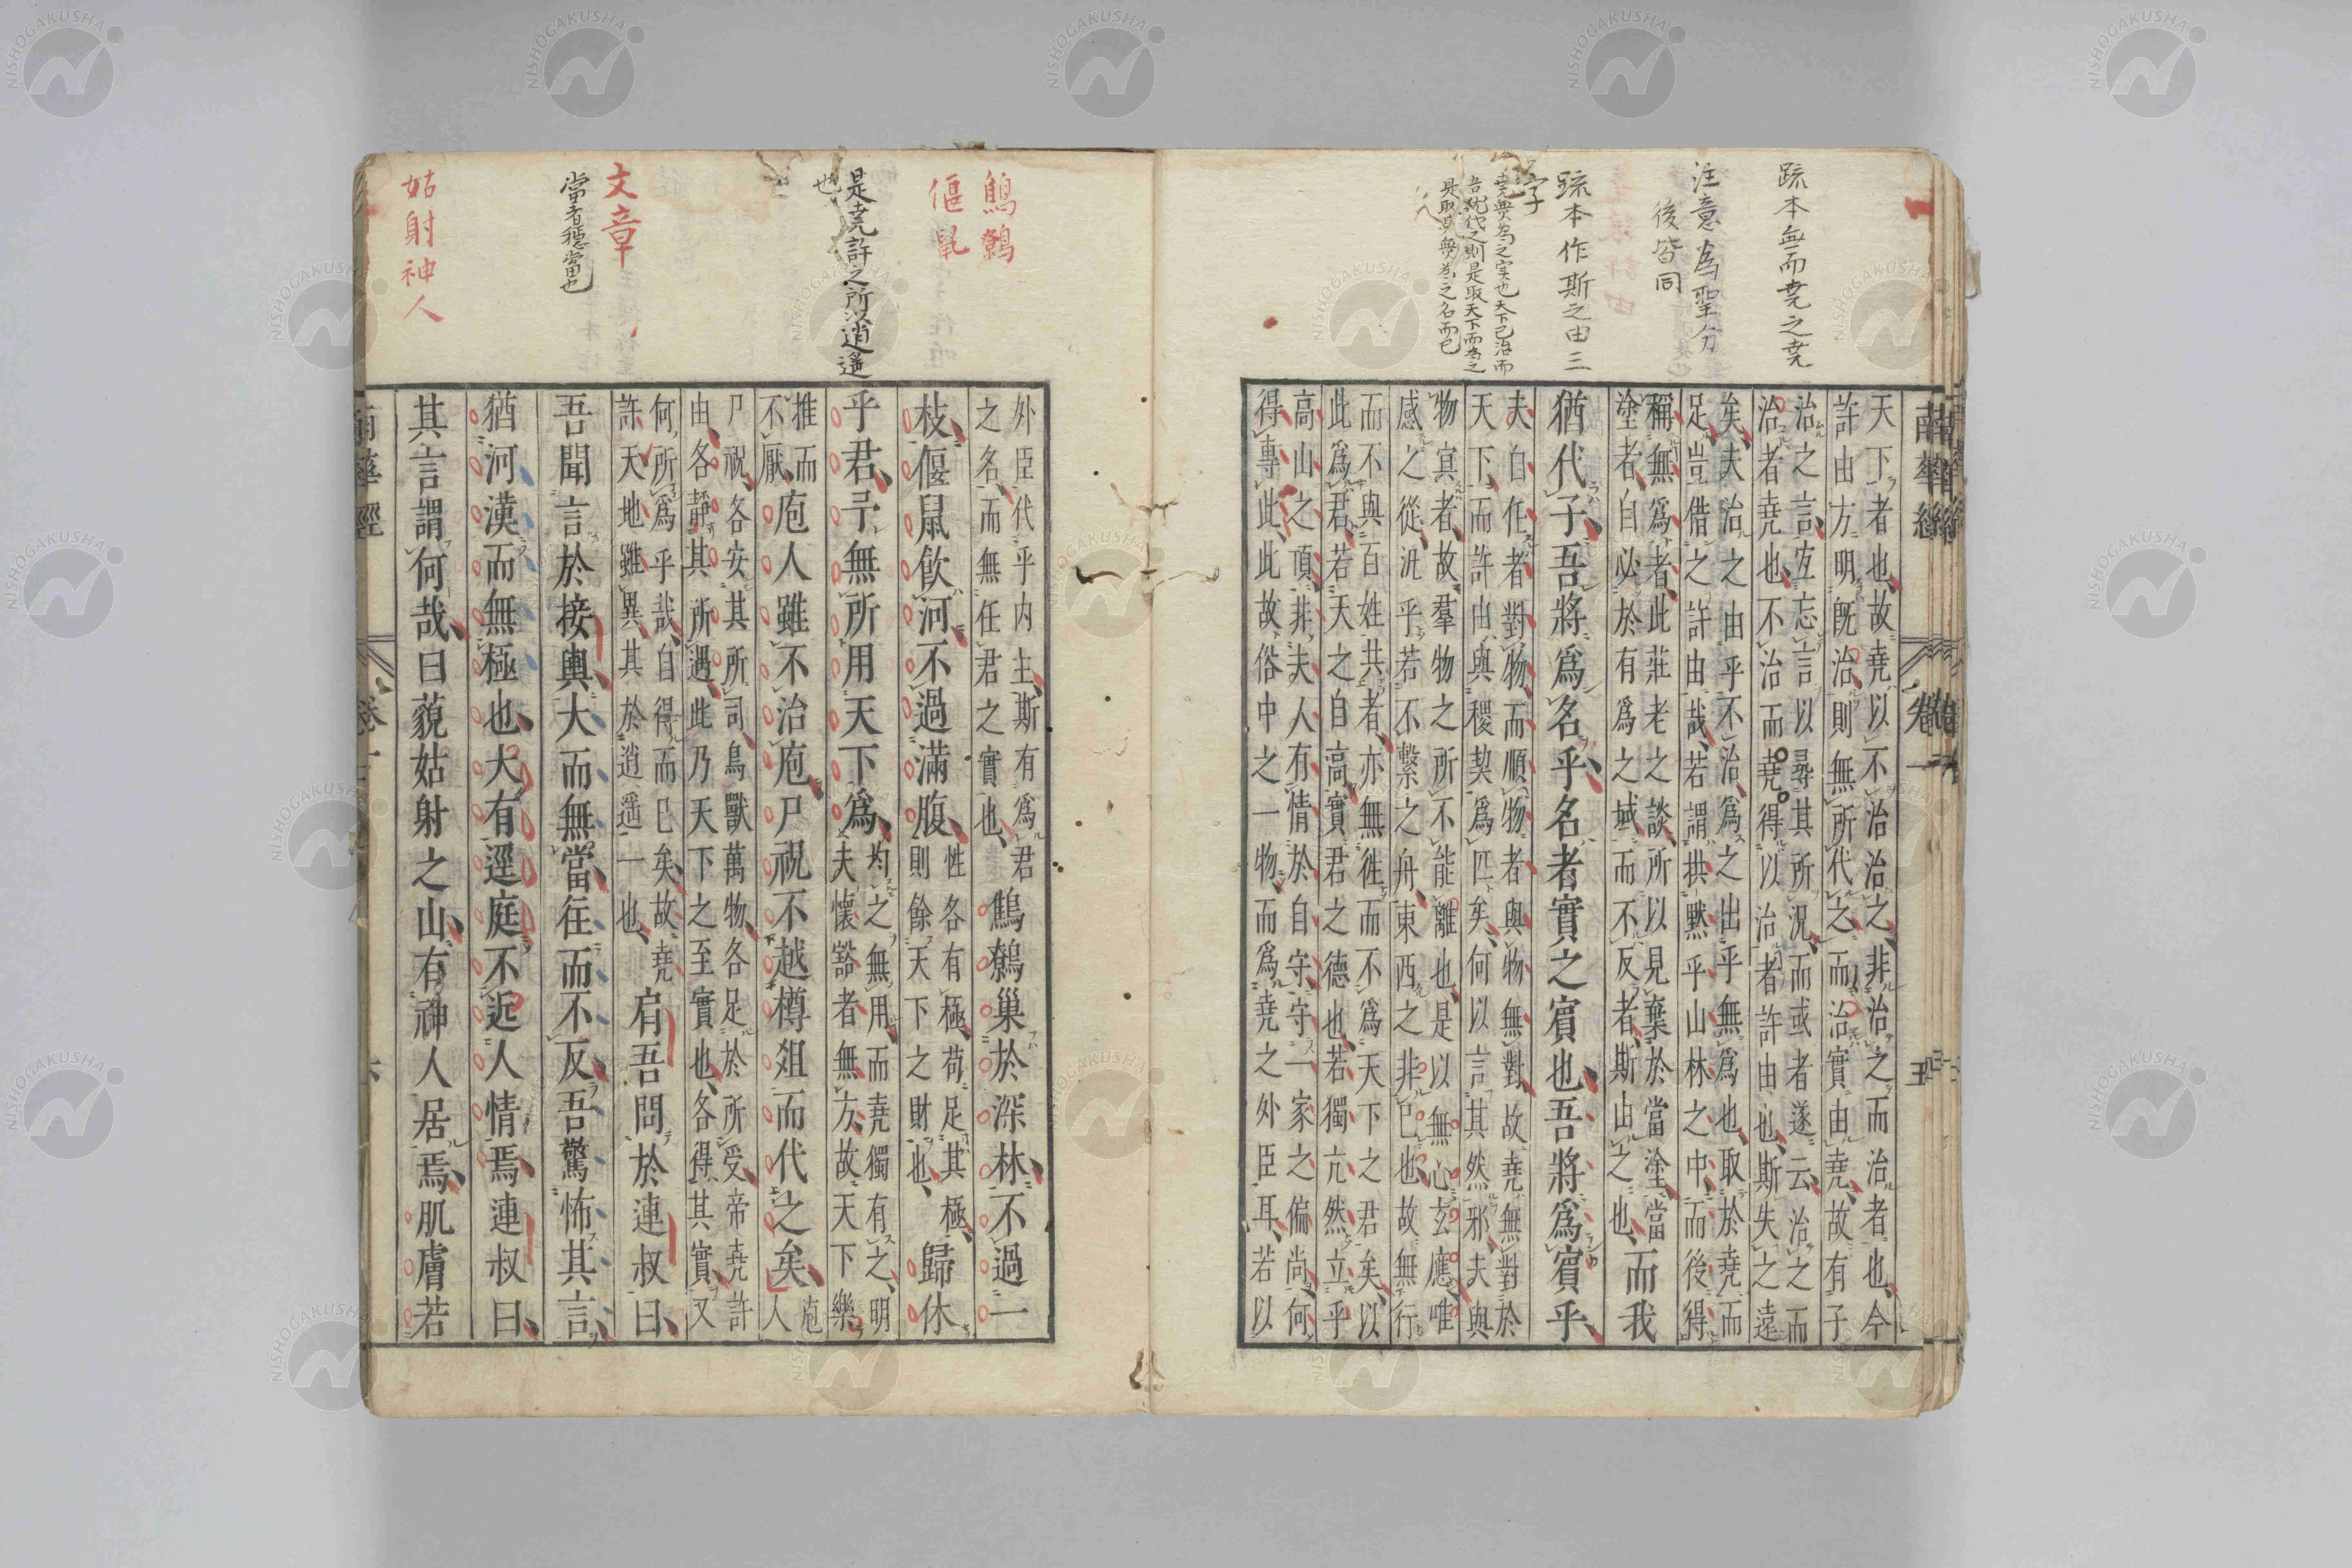 疏本無而堯之堯
注意為聖分
後皆同
疏本作斯之由三
字
堯無為之実也天下已治而
吾代之則是取天下而為之
是取其無為之名而已
南華經
卷一
天下者也故堯以不治治之非治之而治者也今
許由方明既治則無所代之而治實由堯故有子
治之言宜忘言以尋其所況而或者遂云治之而
治者堯也不治而堯得以治者許由也斯失之遠
矣夫治之由乎不治爲之出乎無爲也取於堯而
足豈借之許由哉若謂拱默乎山林之中而後得
稱無爲者此莊老之談所以見棄於當塗當
塗者自必於有爲之域而不反者斯由之也而我
猶代子吾將爲名乎名者實之賓也吾將爲賓乎
夫自任者對物而順物者與物無對故堯無對於
天下而許由與稷契爲匹矣何以言其然邪夫與
物冥者故羣物之所不能離也是以無心玄應唯
感之從汎乎若不繫之舟東西之非己也故無行
而不與百姓共者亦無往而不爲天下之君矣以
此爲君若天之自高實君之德也若獨亢然立乎
高山之頂非夫人有情於自守守一家之偏尚何
得專此此故俗中之一物而爲堯之外臣耳若以
鷦鷯
偃鼠
是堯許之所以逍遙
也
文章
當者穩當也
姑射神人
外臣代乎内主斯有爲君
之名而無任君之實也
鷦鷯巢於深林不過一
枝偃鼠飲河不過滿腹
性各有極苟足其極
則餘天下之財也
歸休
乎君予無所用天下爲
均之無用而堯獨有之明
夫懷豁者無方故天下樂
推而
不厭
庖人雖不治庖尸祝不越樽俎而代之矣
庖
人
尸祝各安其所司鳥獸萬物各足於所受帝堯許
由各靜其所遇此乃天下之至實也各得其實又
何所爲乎哉自得而已矣故堯
許天地雖異其於逍遥一也
肩吾問於連叔曰
吾聞言於接輿大而無當往而不反吾驚怖其言
猶河漢而無極也大有逕庭不近人情焉連叔曰
其言謂何哉曰藐姑射之山有神人居焉肌膚若
南華經
卷一
六